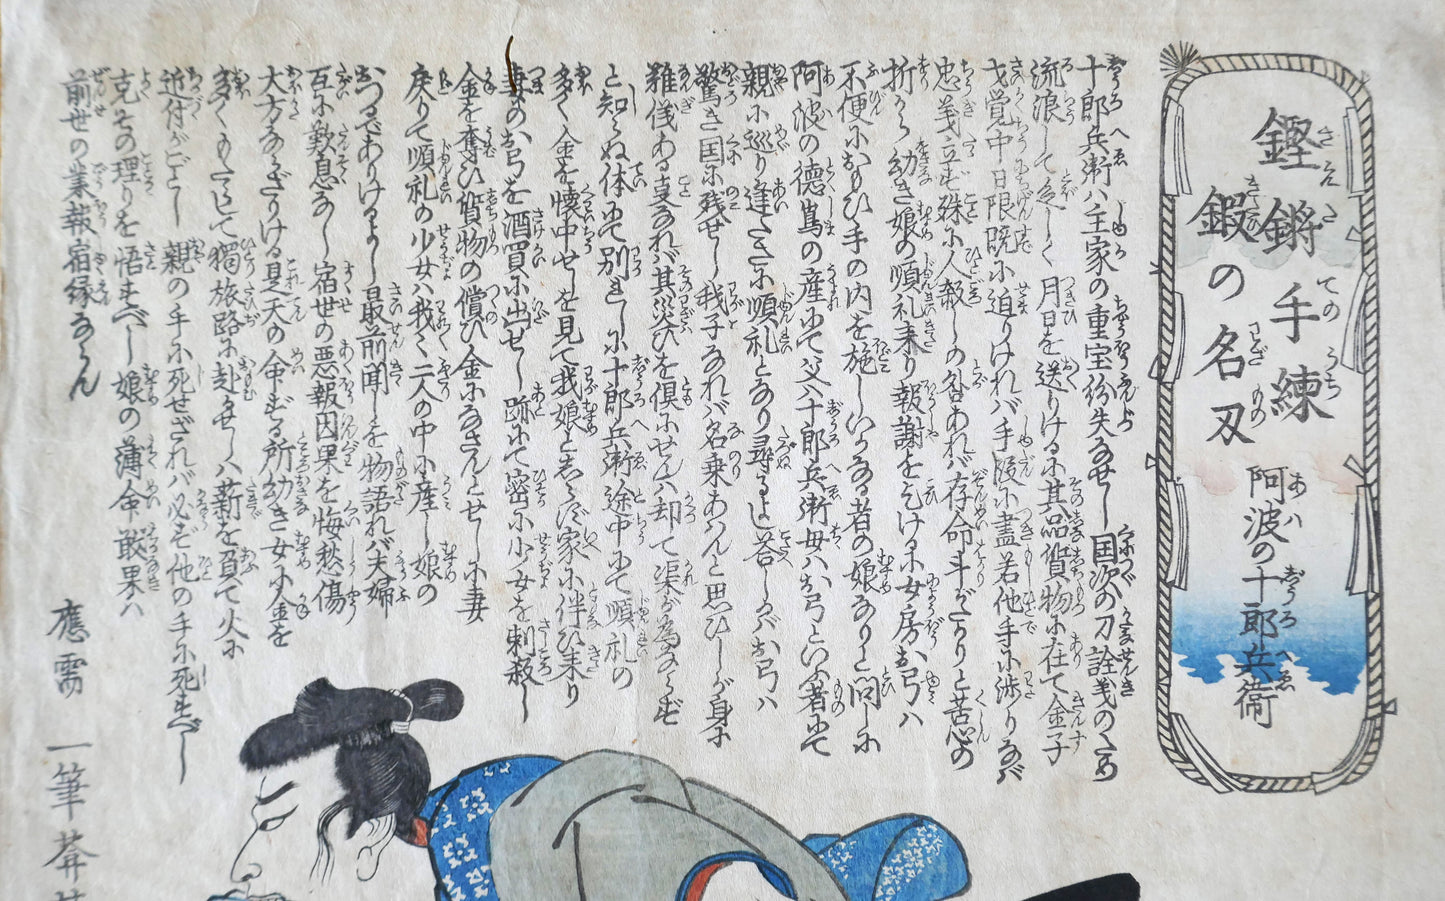 鏗鏘手練
鍜の名刃
阿波の十郎兵衛
十郎兵衛ハ主家の重宝紛失なせし国次の刀詮義のため
流浪して久しく月日を送りける小其品質物に在て金子
才覚中日限既に迫りけれバ手段に盡若他手小渉りなバ
忠義立ず殊に人殺しの咎あれバ存命斗がたかりと苦心の
折から幼き娘の順礼来り報謝を乞ける小女房お弓ハ
不便におもひ手の内を施しいかなる者の娘なりと問しに
阿波の徳嶌の産にて父ハ十郎兵衛母ハお弓といふ者にて
親に巡り逢たさに順礼となり尋るよし答しかバお弓ハ
驚き国に残せし我子なれバ名乗あハんと思ひしが身に
難儀ある事なれバ其災ひを倶にせんハ却て渠が為ならず
と知らぬ体にて別れしに十郎兵衛途中にて順礼の
多く金を懐中せしを見て我娘と志らず家に伴ひ来り
妻のお弓を酒買に出せし跡にて密に小女を刺殺し
金を奪ひ質物の償ひ金になさんとせしに妻
戻りて順礼の少女ハ我々二人の中に産し娘の
おつるでありけるよし最前聞しを物語れバ夫婦
互に歎息なし宿世の悪報因果を悔愁傷
大方ならざりける是天の命ずる所幼き女に金を
多くもたらして獨旅路に赴かせしハ薪を負て火に
近付がごとし親の手に死せざれバ必ず他の手に死すべし
克その理りを悟すべし娘の薄命敢果ハ
前世の業報宿縁ならん
應需
一筆葊